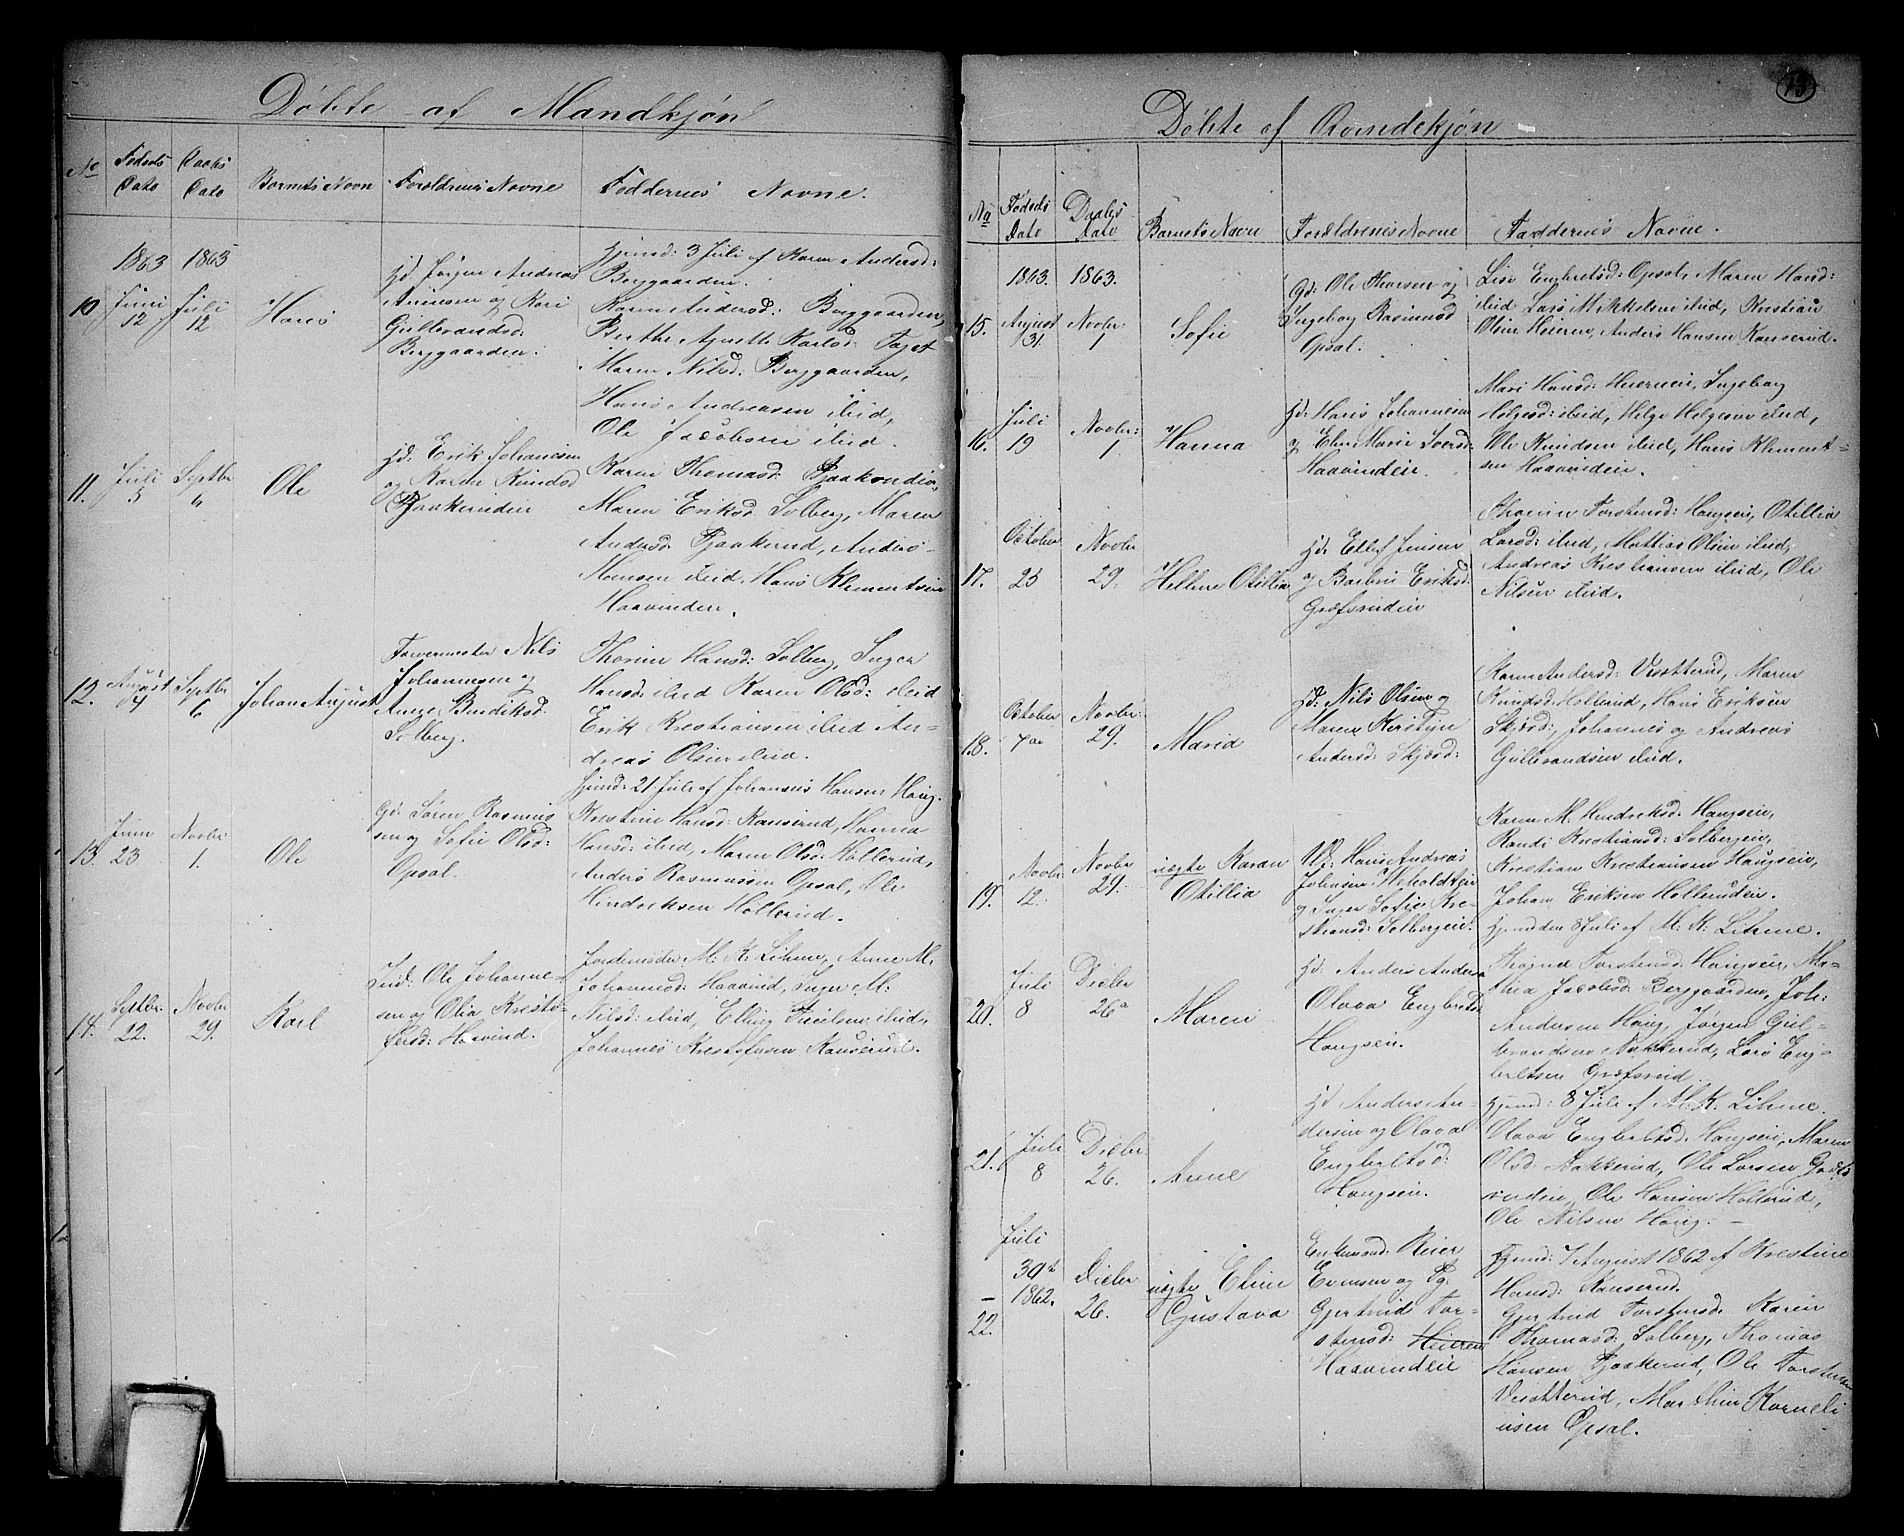 Döbte af Mandkjøn
No
Fødsels Dato
Daabs Dato
Barnets Navn
Forældrenes Navne
Faddernes Navne.
1863 1863
10. Juni 12
Juli 12
Hans
Gd: Jørgen Andreas
og Kari
Gulbrandsd:
Berggaarden.
Hjmd: 3 Juli af Karen Andersd:
Berggaarden.
Karen Andersd: Berggaarden,
Berthe Agnette Karlsd:
Maren Nilsd: Berggaarden,
Hans Andreasen ibid,
Ole Jacobsen ibid.
11. Juli 5
Septbr "
Ole
Hd: Erik Johannesen
og Karen Knudsd
Karen Thomasd:
Maren Eriksd Solberg, Maren
Andersd Pjaakerud, Anders
Hansen ibid, Hans Klementsen
Haavindeie.
12. August 14
Septbr 6
Johan August
Farvermester Nils
Johannesen og
Anne Bendiksd:
Solberg.
Thorine Hansd: Solberg, Inger
Hansd: ibid Karen Olsd: ibid
Erik Kristiansen ibid An-
dreas Olsen ibid.
13. Juni 23
Novbr 1.
Ole
Gd: Søren Rasmus
sen og Sofie Olsd:
Opsal.
Hjmd: 21 Juli af Johannes Hansen Houg.
Kristine Hansd: Kanserud, Hanna
Hansd: ibid, Maren Olsd: Hollerud,
Anders Rasmussen Opsal, Ole
Hendriksen Hollerud.
14. Septbr: 22.
Novbr 29.
Karl
Ind: Ole Johanne-
sen og Olia Kristo-
fersd: Haavind.
Jordemoder M: K: Lihme, Anne M:
Johannesd: Haavind, Inger M:
Nilsd: ibid, Elling Truelsen ibid,
Johannes Kristofersen Kanserud.
13
Döbte af Qvindekjøn
No
Fødsels Dato
Daabs Dato
Barnets Navn
Forældrenes Navne
Faddernes Navne.
1863. 1863.
15. August 31.
Novbr: 1
Sofie
Gd: Ole Thorsen og
Ingeborg Rasmusd
Opsal.
Lise Engbretsd: Opsal, Maren Hansd:
ibid Lars Mikkelsen ibid, Kristian
Olsen Heieren, Anders Hansen Kanserud.
16. Juli 19
Novbr: 1
Hanna
Hd: Hans Johannesen
og Elen Marie Iversd:
Haavindeie.
Mari Hansd: Ingeborg
Helgesd: ibid, Helge Helgesen ibid,
Ole Knudsen ibid, Hans Klement-
sen Haavindeie.
17. October 25
Novbr 29.
Hellene Otillia
Hd: Ellef Jensen
og Barbru Eriksd:
Græfsrudeie
Thorine Torstensd: Hougseie, Otillia
Larsd: ibid, Mattias Olsen ibid,
Andreas Kristiansen ibid, Ole
Nilsen ibid.
18. October
Novbr: 29.
Marie
Hd: Nils Olsen og
Maren Kirstine
Andersd: Skjøsd:
Karen Andersd: Visetterud, Maren
Knudsd: Hollerud, Hans Eriksen
Skjøsd: Johannes og Andreas
Gulbrandsen ibid.
19. Novbr 12.
Novbr 29.
uægte Karen
Otillia
Ud: Hans Andreas
Johnsen
og Inger Sofie Kri-
stiansd: Solbergeie.
Karen M. Hendriksd: Hougseie,
Randi Kristiansd: Solbergeie,
Kristian Kristiansen Hougseie,
Johan Eriksen Hollerudeie.
20. Juli 8
Decbr 26
Maren
Hd. Anders Andersen
Olava Engbretsd:
Hougseie.
Hjmd den 8 Juli af M. K: Lihme.
Torstensd: Hougseie, Ma-
Jacobsd: Berggaarden, Joh:
Andersen Houg, Jørgen Gul-
brandsen Nøkkerud, Lars Eng-
bretsen Græfsrud.
21. Juli 8
Decbr 26.
Anne
Hd Anders An-
dersen og Olava
Engbretsd:
Hougseie.
Hjmd: 8 Juli af M. K. Lihme.
Olava Engbretsd: Hougseie, Maren
Olsd: Ole Larsen Græfs-
rudeie, Ole Hansen Hollerud,
Ole Nilsen Houg. –
22. Juli 30te 1862.
Decbr 26.
uægte Eline
Gustava
Enkemand: Reier
Evensen og Pg.
Gjertrud Tor-
stensd: Heieren
Haavindeie
Hjmd: 7 August 1862 af Kristine
Hansd: Kanserud.
Gjertrud Torstensd. Karen
Thomasd: Solberg, Thomas
Hansen Pjaakerud, Ole Torstensen
Visetterud, Marthin Korneli
usen Opsal.